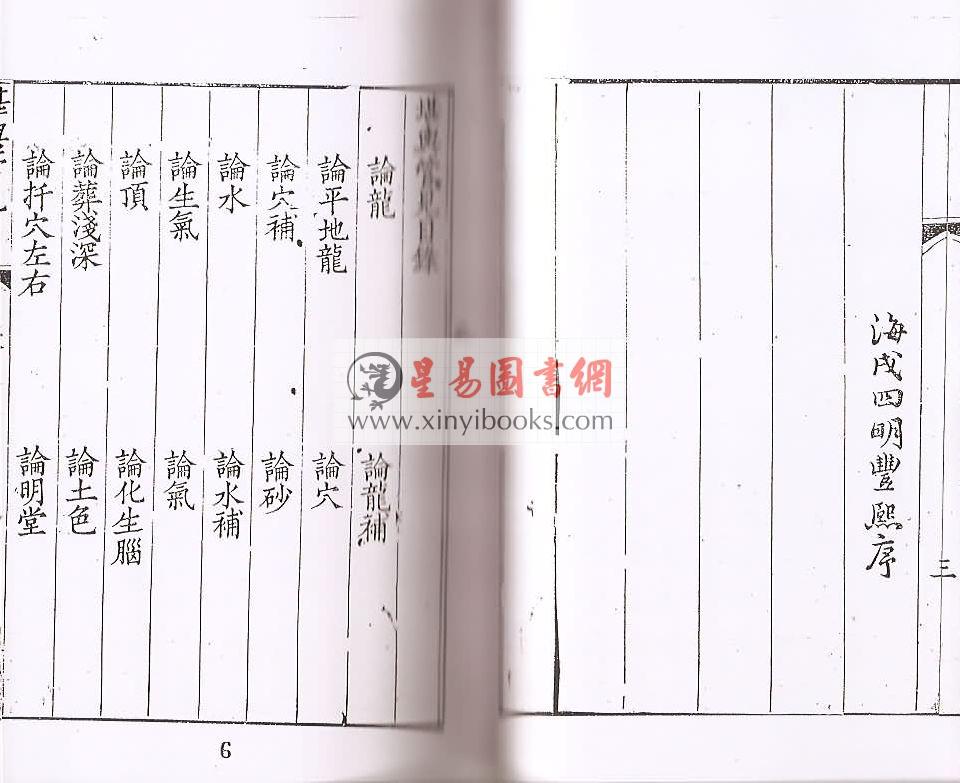 三
海戍四明豐熙序
堪輿管見目錄
論龍
論龍補
論平地龍
論穴
論穴補
論砂
論水
論水補
論生氣
論氣
論頂
論化生腦
論葬淺深
論土色
論扦穴左右
論明堂
6
星易圖書網
www.xinyibooks.com